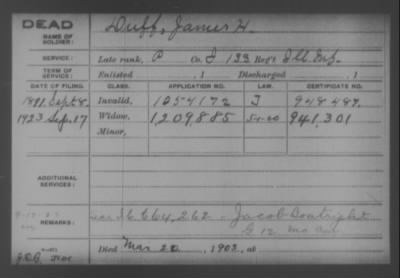 DEAD
NAME OF SOLDIER:
Duff, James H.
SERVICE:
Late rank, P Co. I 133 Reg't Ill. Inf.
TERM OF SERVICE:
Enlisted , 1 Discharged , 1
DATE OF FILING. CLASS. APPLICATION NO. LAW. CERTIFICATE NO.
1891, Sept 8. Invalid, 1054172 J 948.489.
1923 Sep. 17 Widow, 1209885 941,301
Minor,
ADDITIONAL SERVICES:
REMARKS:
664,262 - Jacob Boatright
G 12 Mo
Died Mar 20, 1903, at